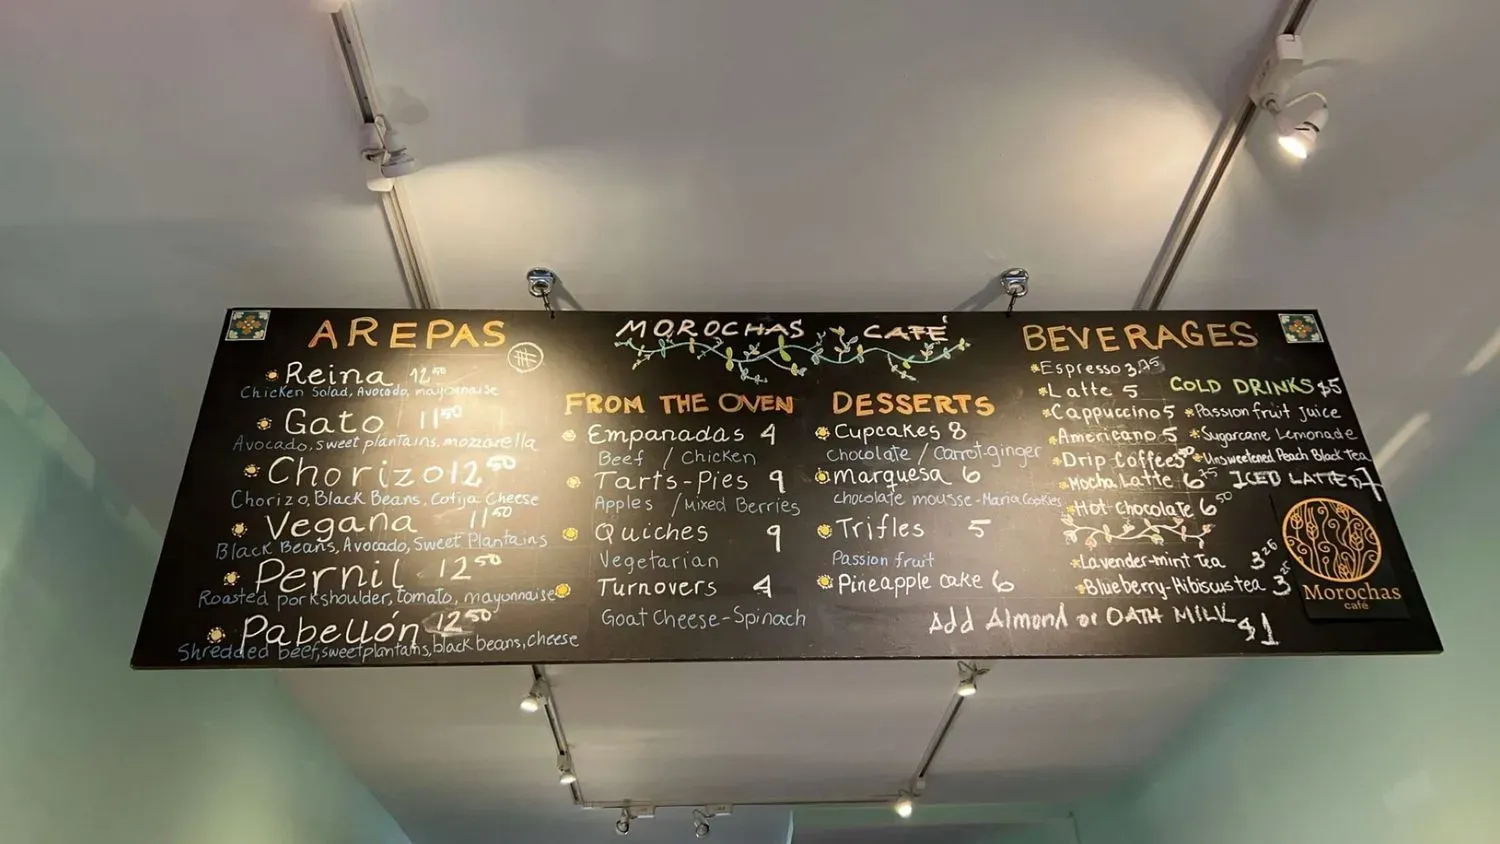 AREPAS
Reina 12.50
Chicken Salad, Avocado, mayonnaise
Gato 11.50
Avocado, sweet plantains, mozzarella
Chorizo 12.50
Chorizo, Black Beans, Cotija Cheese
Vegana 11.50
Black Beans, Avocado, Sweet Plantains
Pernil 12.50
Roasted porkshoulder, tomato, mayonnaise
Pabellón 12.50
Shredded beef, sweetplantains, black beans, cheese
MOROCHAS CAFÉ
FROM THE OVEN
Empanadas 4
Beef / Chicken
Tarts-Pies 9
Apples / Mixed Berries
Quiches 9
Vegetarian
Turnovers 4
Goat Cheese-Spinach
DESSERTS
Cupcakes 8
Chocolate / Carrot-ginger
marquesa 6
chocolate mousse-Maria Cookies
Trifles 5
Passion fruit
Pineapple cake 6
BEVERAGES
Espresso 3.75
Latte 5
Cappuccino 5
Americano 5
Drip Coffee
Mocha Latte 6.75
Hot chocolate 6.50
Lavender-mint Tea 3.25
Blueberry-Hibiscus tea 3.25
COLD DRINKS $5
Passion fruit juice
Sugarcane Lemonade
Unsweetened Peach Black Tea
ICED LATTES 7
Add Almond or OATH MILK $1
Morochas
café